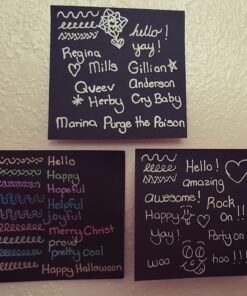 hello!
yay!
Regina
Mills Gillian
Queev Anderson
Herby Cry Baby
Marina Purge the Poison
Hello
Happy
Hopeful
Helpful
joyful
Merry Christ
proud
pretty cool
Happy Halloween
Hello!
amazing
awesome! Rock
Happy On !!!
Yay! Party on
woo hoo!!!